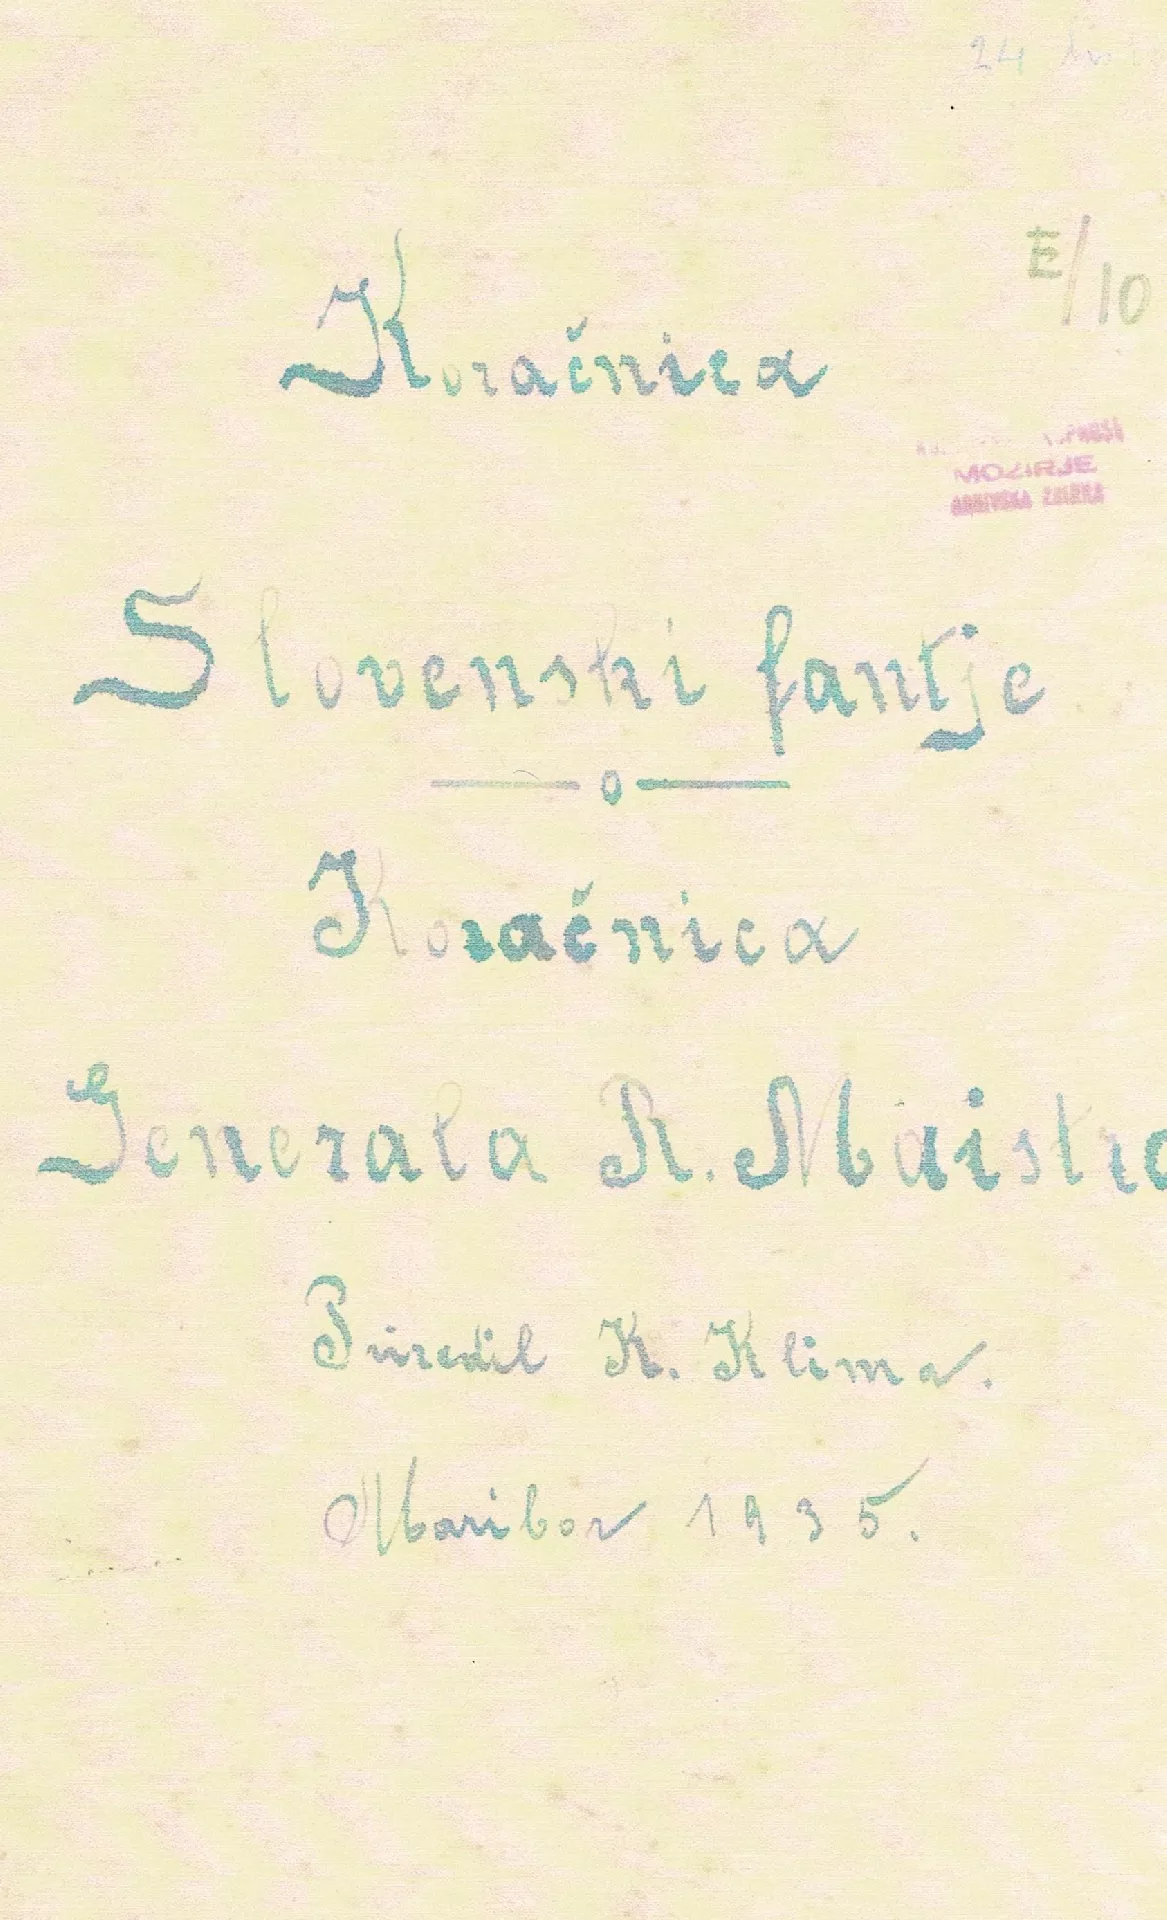 24
E/10
Koračnica
MOZIRJE
ARHIVSKA ZBIRKA
Slovenski fantje
o
Koračnica
Generala R. Maistra
Priredil K. Klima.
Maribor 1935.